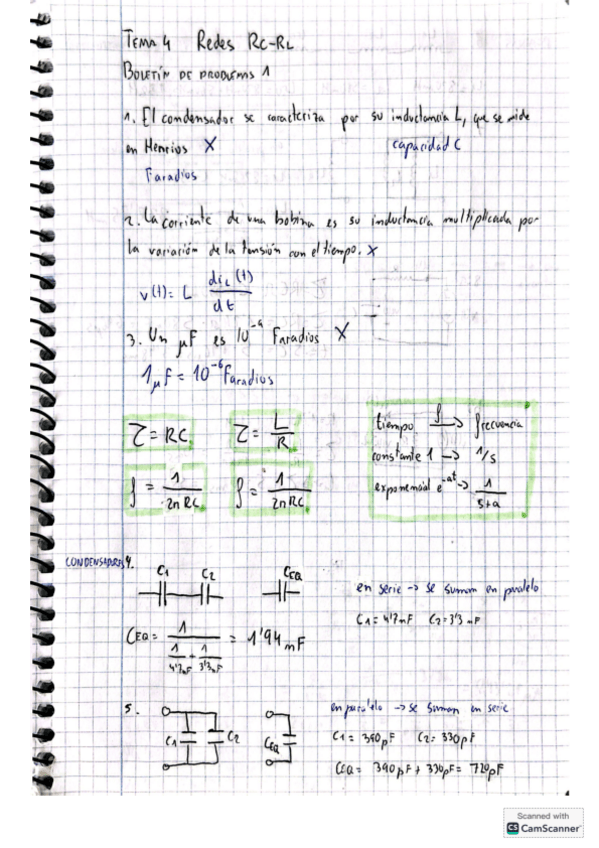 TEMA 4 Redes RC-RL
BOLETÍN DE PROBLEMAS 1
1. El condensador se caracteriza por su inductancia L, que se mide
en Henrios X capacidad C
Faradios
2. La corriente de una bobina es su inductancia multiplicada por
la variación de la tensión con el tiempo. X
v(t)= L diL(t)/dt
3. Un μF es 10^-9 Faradios X
1μF = 10^-6 Faradios
τ = RC τ = L/R
f = 1/2πRC f = 1/2πRC
tiempo f→ frecuencia
constante 1 → 1/s
exponencial e^-at → 1/s+a
CONDENSADORES 4.
C1 C2 CEQ
en serie → se suman en paralelo
C1 = 4'7nF C2 = 3'3nF
CEQ = 1/(1/4'7nF + 1/3'3nF) = 1'94nF
5.
en paralelo → se suman en serie
C1 C2 CEQ
C1 = 390pF C2 = 330pF
CEQ = 390pF + 330pF = 720pF
Scanned with
CS CamScanner